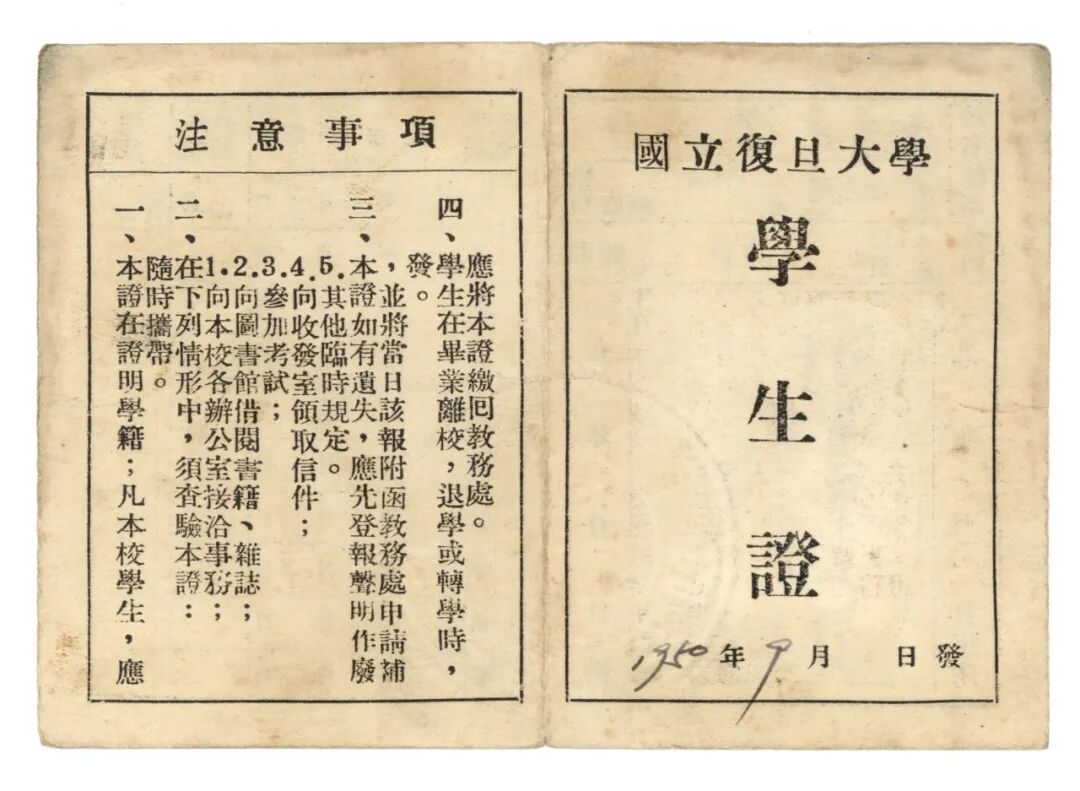 注意事項
一、本證在證明學籍；凡本校學生，應
隨時攜帶。
二、在下列情形中，須查驗本證：
1.向本校各辦公室接洽事務；
2.向圖書館借閱書籍、雜誌；
3.參加考試；
4.向收發室領取信件；
5.其他臨時規定。
三、本證如有遺失，應先登報聲明作廢
，並將當日該報附函教務處申請補
發。
四、學生在畢業離校，退學或轉學時，
應將本證繳回教務處。
國立復旦大學
學生證
1950年9月 日發